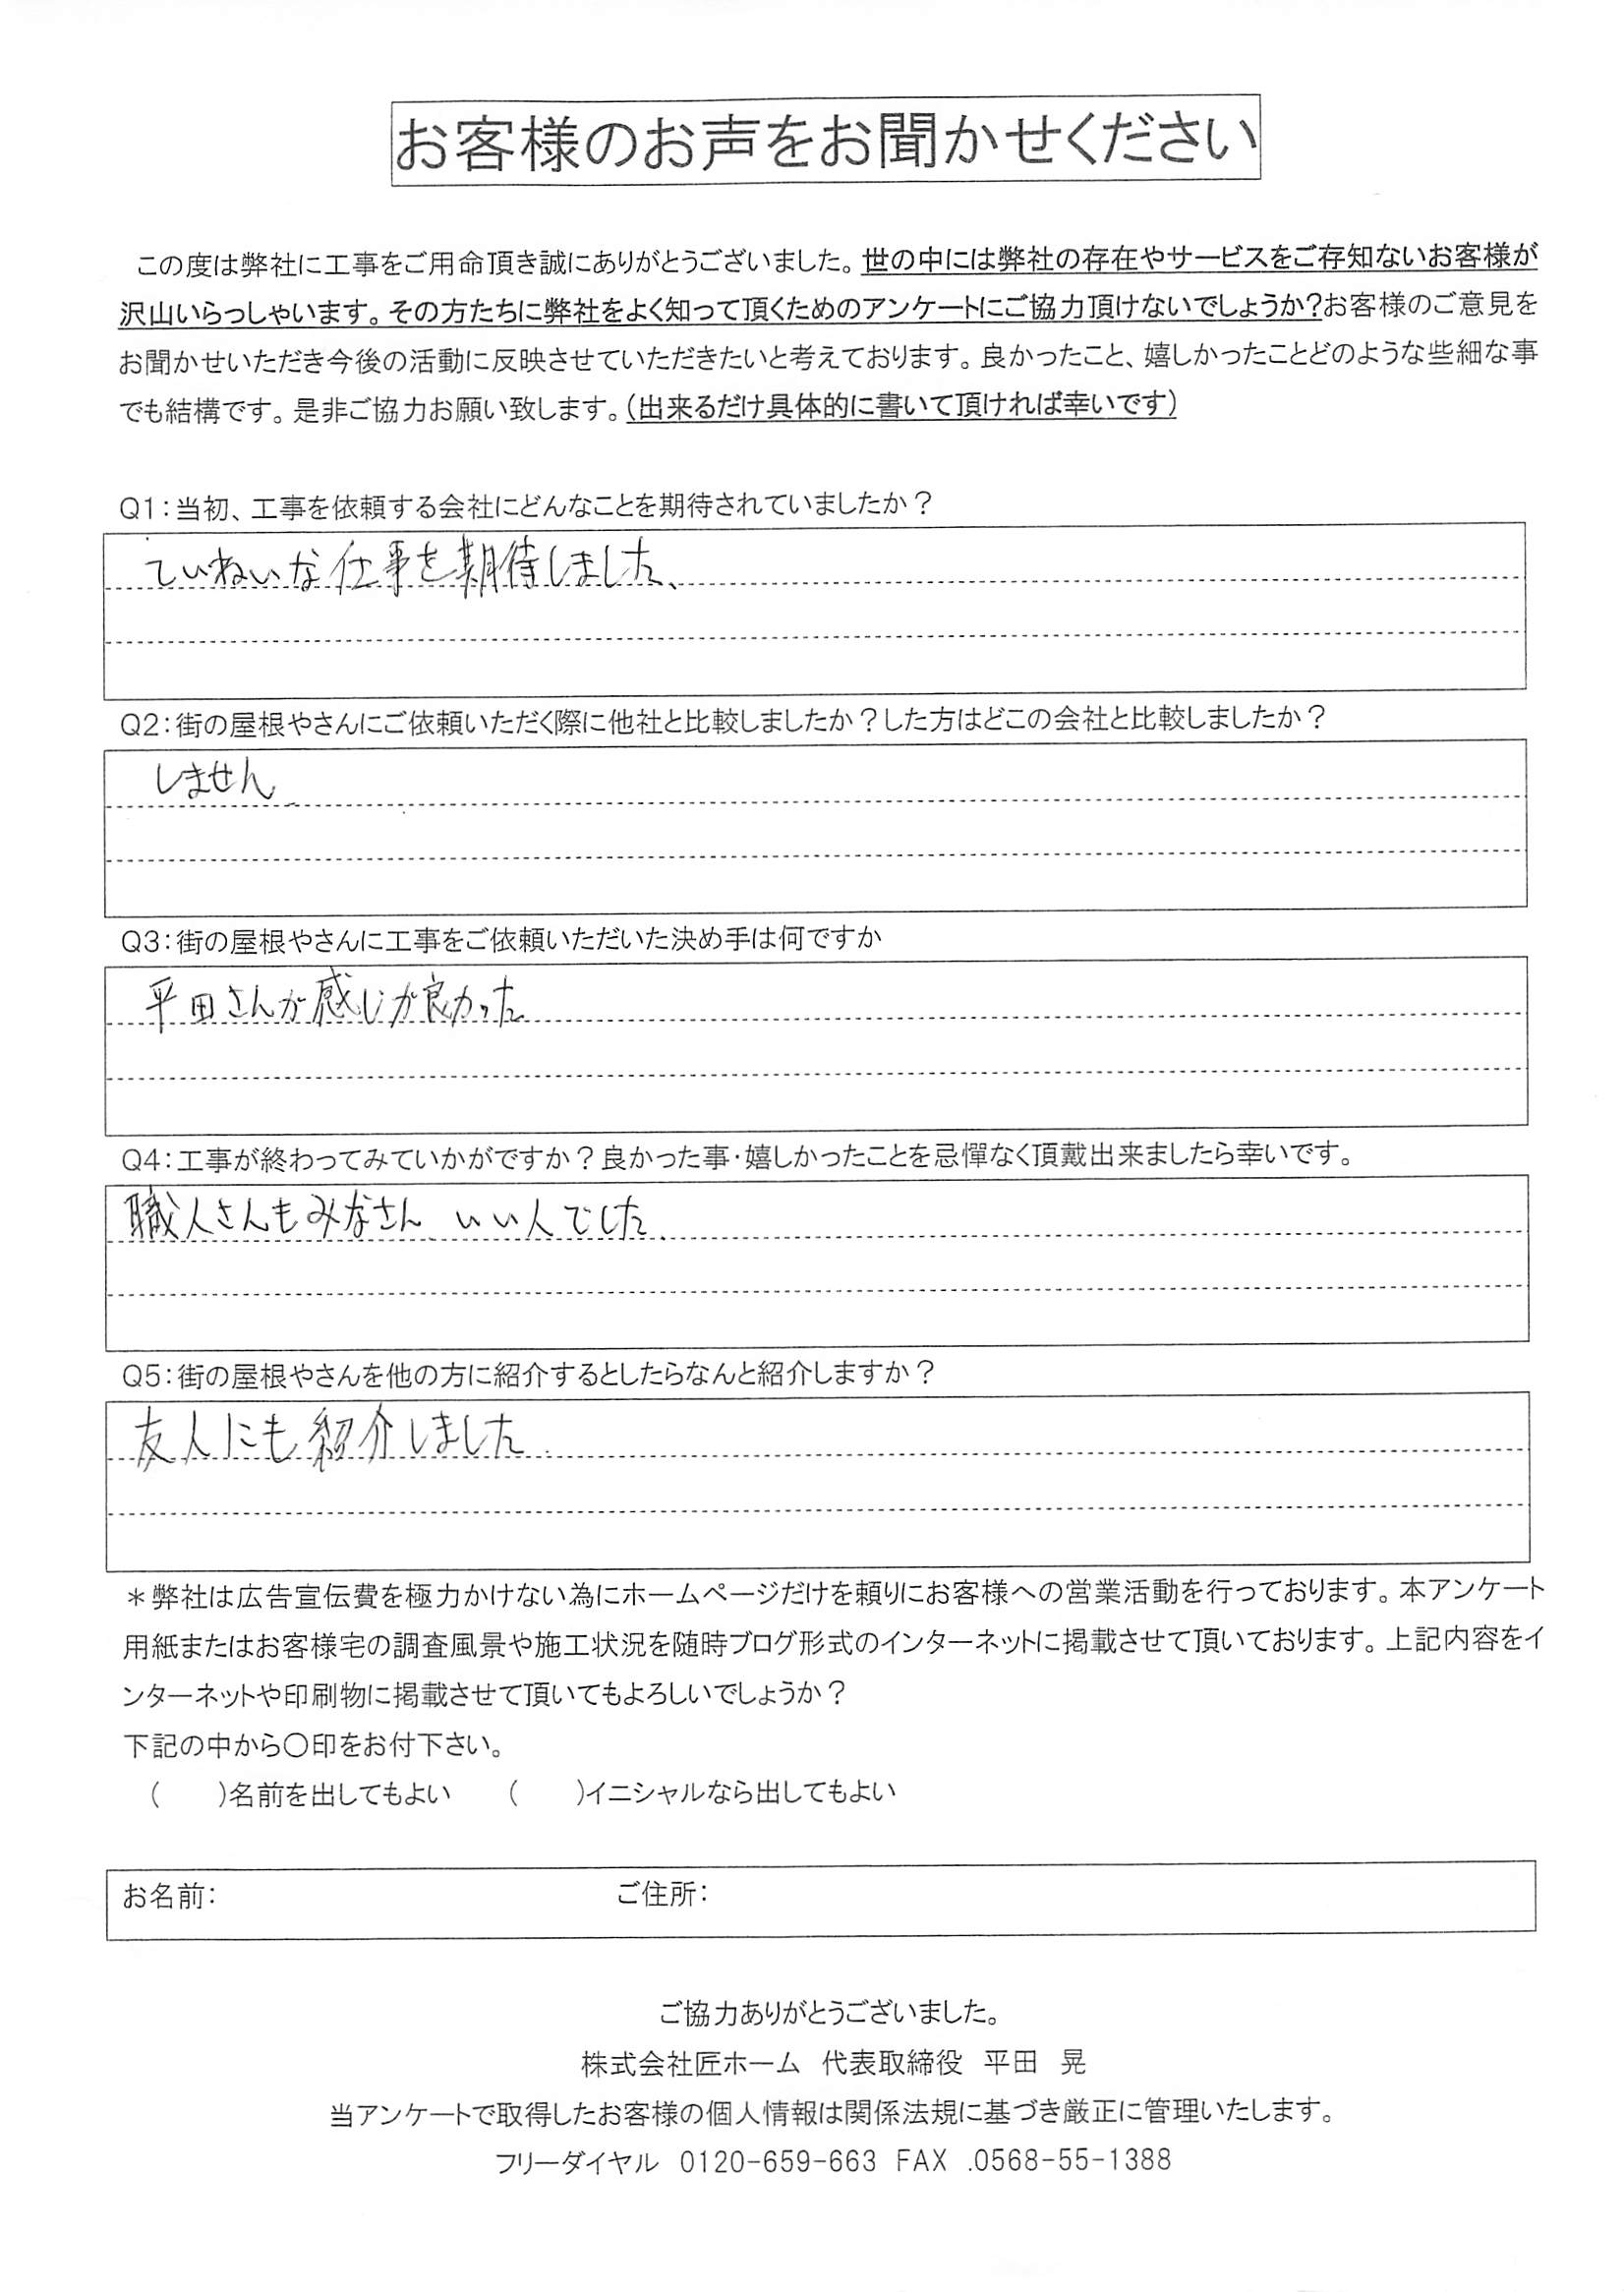 お客様のお声をお聞かせください
この度は弊社に工事をご用命頂き誠にありがとうございました。世の中には弊社の存在やサービスをご存知ないお客様が
沢山いらっしゃいます。その方たちに弊社をよく知って頂くためのアンケートにご協力頂けないでしょうか?お客様のご意見を
お聞かせいただき今後の活動に反映させていただきたいと考えております。良かったこと、嬉しかったことどのような些細な事
でも結構です。是非ご協力お願い致します。(出来るだけ具体的に書いて頂ければ幸いです)
Q1:当初、工事を依頼する会社にどんなことを期待されていましたか?
ていねいな仕事を期待しました、
Q2:街の屋根やさんにご依頼いただく際に他社と比較しましたか?した方はどこの会社と比較しましたか?
しません
Q3:街の屋根やさんに工事をご依頼いただいた決め手は何ですか
平田さんが感じが良かった
Q4:工事が終わってみていかがですか?良かった事・嬉しかったことを忌憚なく頂戴出来ましたら幸いです。
職人さんもみなさん いい人でした
Q5:街の屋根やさんを他の方に紹介するとしたらなんと紹介しますか?
友人にも紹介しました
*弊社は広告宣伝費を極力かけない為にホームページだけを頼りにお客様への営業活動を行っております。本アンケート
用紙またはお客様宅の調査風景や施工状況を随時ブログ形式のインターネットに掲載させて頂いております。上記内容をイ
ンターネットや印刷物に掲載させて頂いてもよろしいでしょうか?
下記の中から〇印をお付下さい。
(　　)名前を出してもよい　　(　　)イニシャルなら出してもよい
お名前:　　ご住所:
ご協力ありがとうございました。
株式会社匠ホーム　代表取締役　平田　晃
当アンケートで取得したお客様の個人情報は関係法規に基づき厳正に管理いたします。
フリーダイヤル 0120-659-663 FAX .0568-55-1388